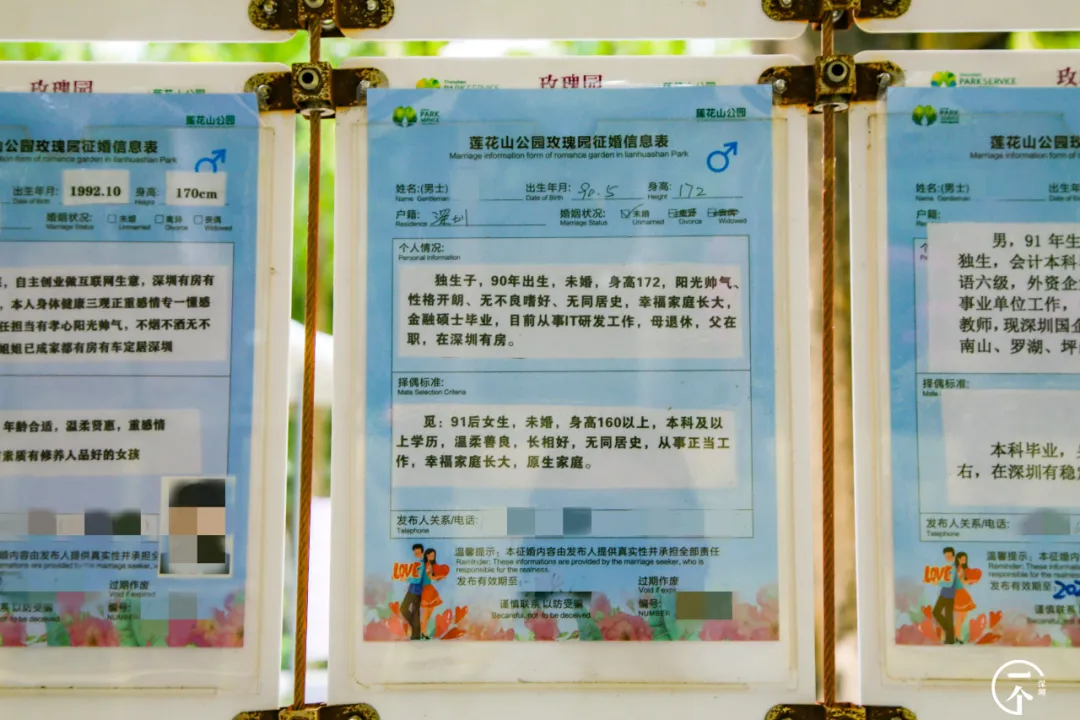 玫瑰园
莲花山公园
山公园玫瑰园征婚信息表
ation form of romance garden in lianhuashan Park
出生年月: 1992.10 身高: 170cm
Date of Birth Height
婚姻状况: □未婚 □离异 □丧偶
Marriage Status Unmarried Divorce Widowed
自主创业做互联网生意，深圳有房有
本人身体健康三观正重感情专一懂感
任担当有孝心阳光帅气，不烟不酒无不
姐姐已成家都有房有车定居深圳
年龄合适，温柔贤惠，重感情
素质有修养人品好的女孩
婚内容由发布人提供真实性并承担全
过期作废
Void if expired
系 以防受骗
编号:
NUMBER
玫瑰园
PARK SERVICE
莲花山公园
莲花山公园玫瑰园征婚信息表
Marriage information form of romance garden in lianhuashan Park
姓名:(男士) 出生年月: 90.5 身高: 172
Name Gentleman Date of Birth Height
户籍: 深圳 婚姻状况: ☑未婚 □离异 □丧偶
Residence Marriage Status Unmarried Divorce Widowed
个人情况:
Personal information
独生子，90年出生，未婚，身高172，阳光帅气、
性格开朗、无不良嗜好、无同居史，幸福家庭长大，
金融硕士毕业，目前从事IT研发工作，母退休，父在
职，在深圳有房。
择偶标准:
Mate Selection Criteria
觅：91后女生，未婚，身高160以上，本科及以
上学历，温柔善良，长相好，无同居史，从事正当工
作，幸福家庭长大，原生家庭。
发布人关系/电话:
Telephone
LOVE
温馨提示：本征婚内容由发布人提供真实性并承担全部责任
Reminder: These informations are provided by the marriage seeker, who is
responsible for the realness.
发布有效期至: 过期作废
Void if expired
谨慎联系 以防受骗
Becareful, not to be deceived
编号:
NUMBER
PARK SERVICE
莲花山公园玫瑰园征婚信息表
Marriage information form of romance garden
姓名:(男士) 出生年
Name Gentleman
户籍:
男，91年生
独生，会计本科
语六级，外资企
事业单位工作，
教师，现深圳国企
南山、罗湖、坪
择偶标准:
Mate
本科毕业，
右，在深圳有稳
发布人关系/电话:
Telephone
LOVE
温馨提示：本征婚内
Reminder: These informations
responsible for the realness.
发布有效期至 202
谨慎联系
一个
深圳